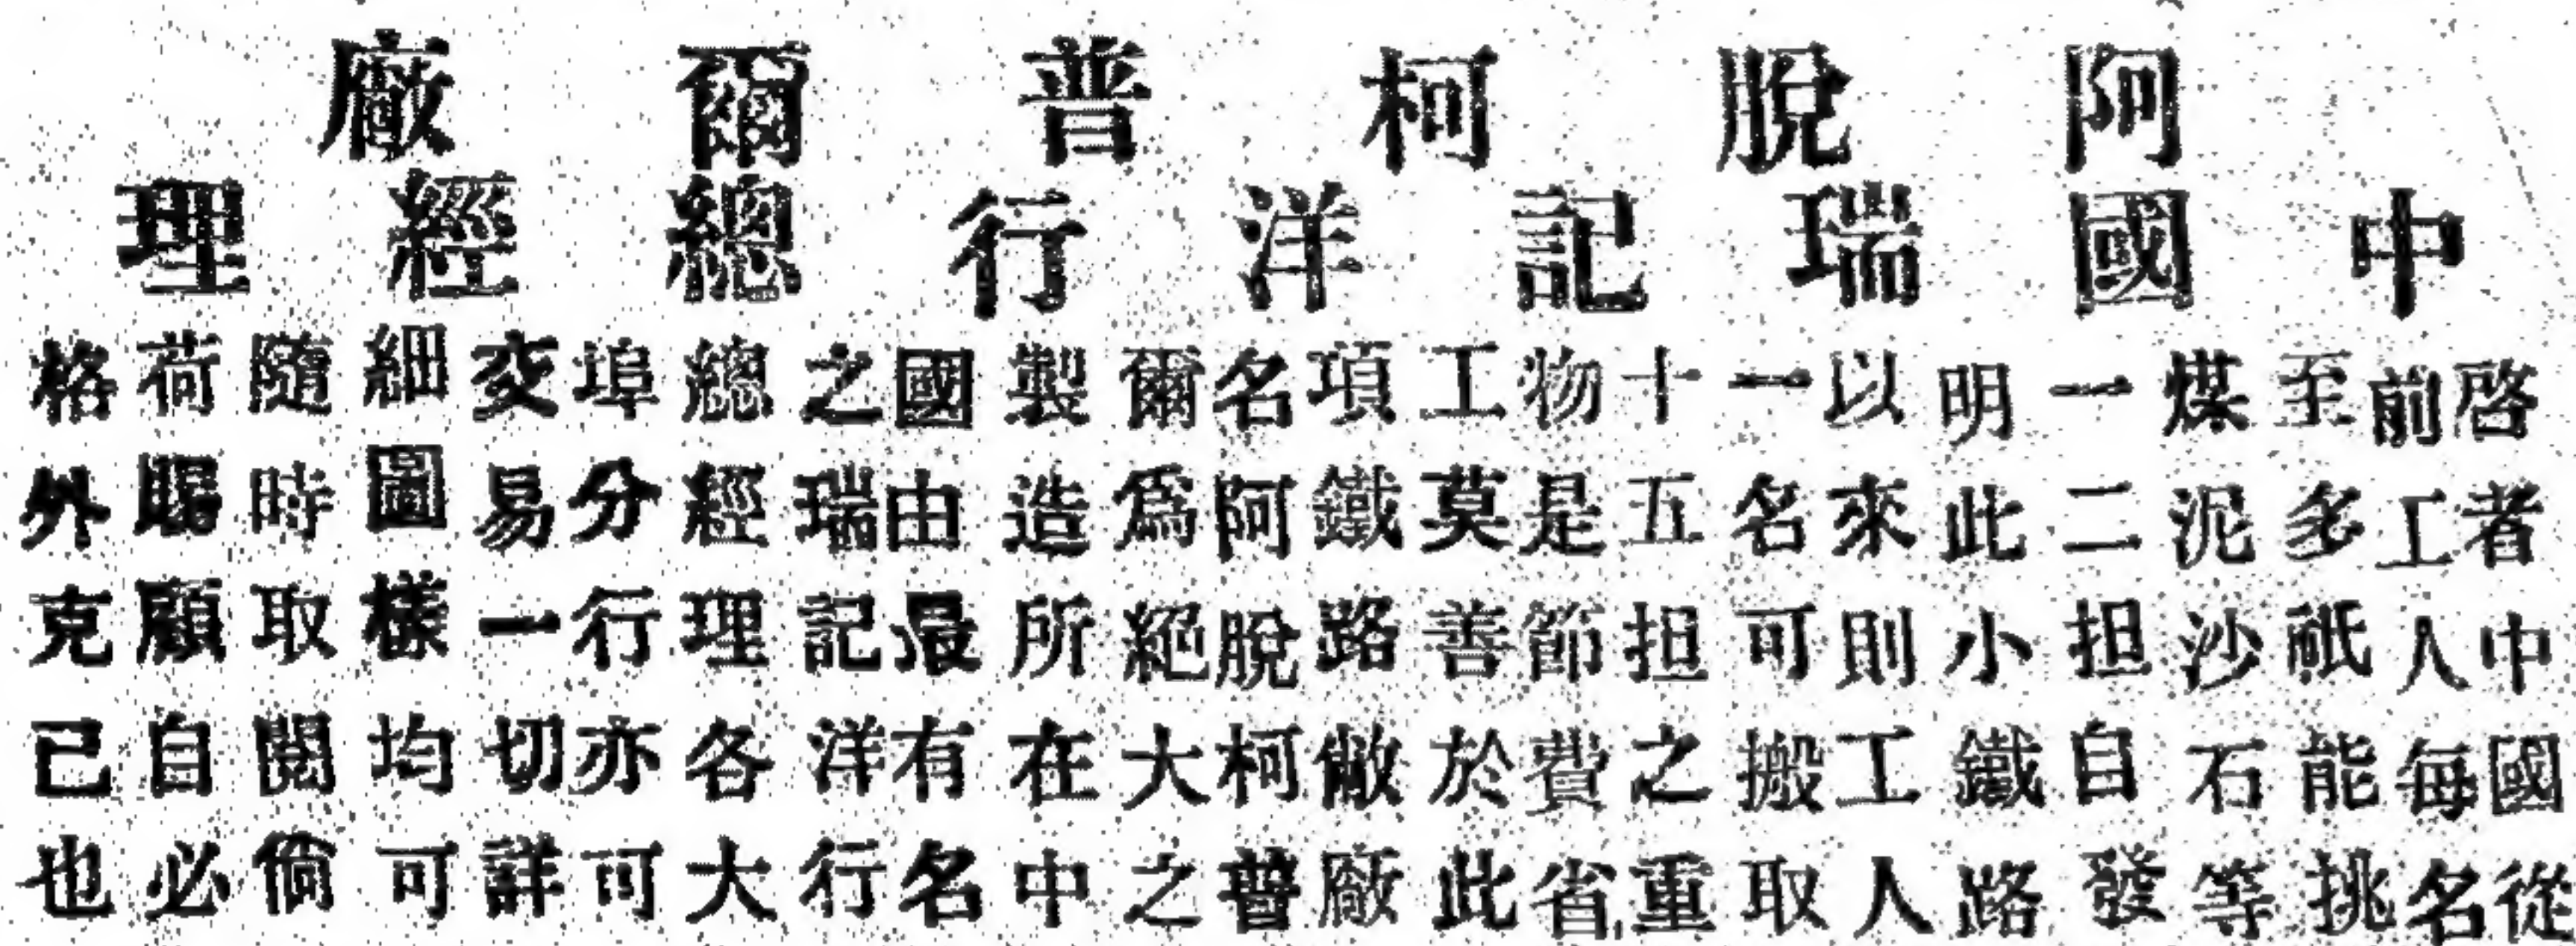 阿脫柯普爾廠
中國瑞記洋行總經理
啓者中國從
前工人每名
至多祇能挑
煤泥沙石等
一二担自發
明此小鐵路
以來則工人
一名可搬取
十五担之重
物是節費省
工莫善於此
項鐵路敝廠
名阿脫柯普
爾爲絕大之
製造所在中
國由最有名
之瑞記洋行
總經理各大
埠分行亦可
交易一切詳
細圖樣均可
隨時取閱倘
荷賜顧自必
格外克己也